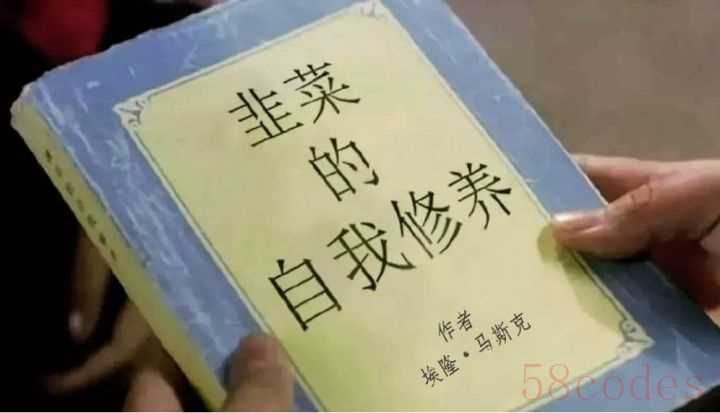 韭菜
的
自我修养
作者
埃隆·马斯克
58codes